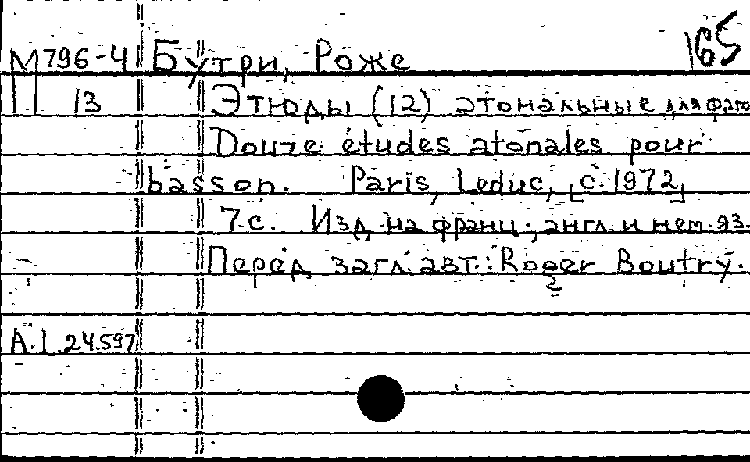 М 796-4 Бутри, Роже 165
П 13 Этюды (12) атональные для фаго
Douze études atonales pour
basson. Paris, Leduc, [c. 1972]
7 с. Изд. на франц., англ. и нем. яз.
Перед загл. авт.: Roger Boutry.
A.L.24.597